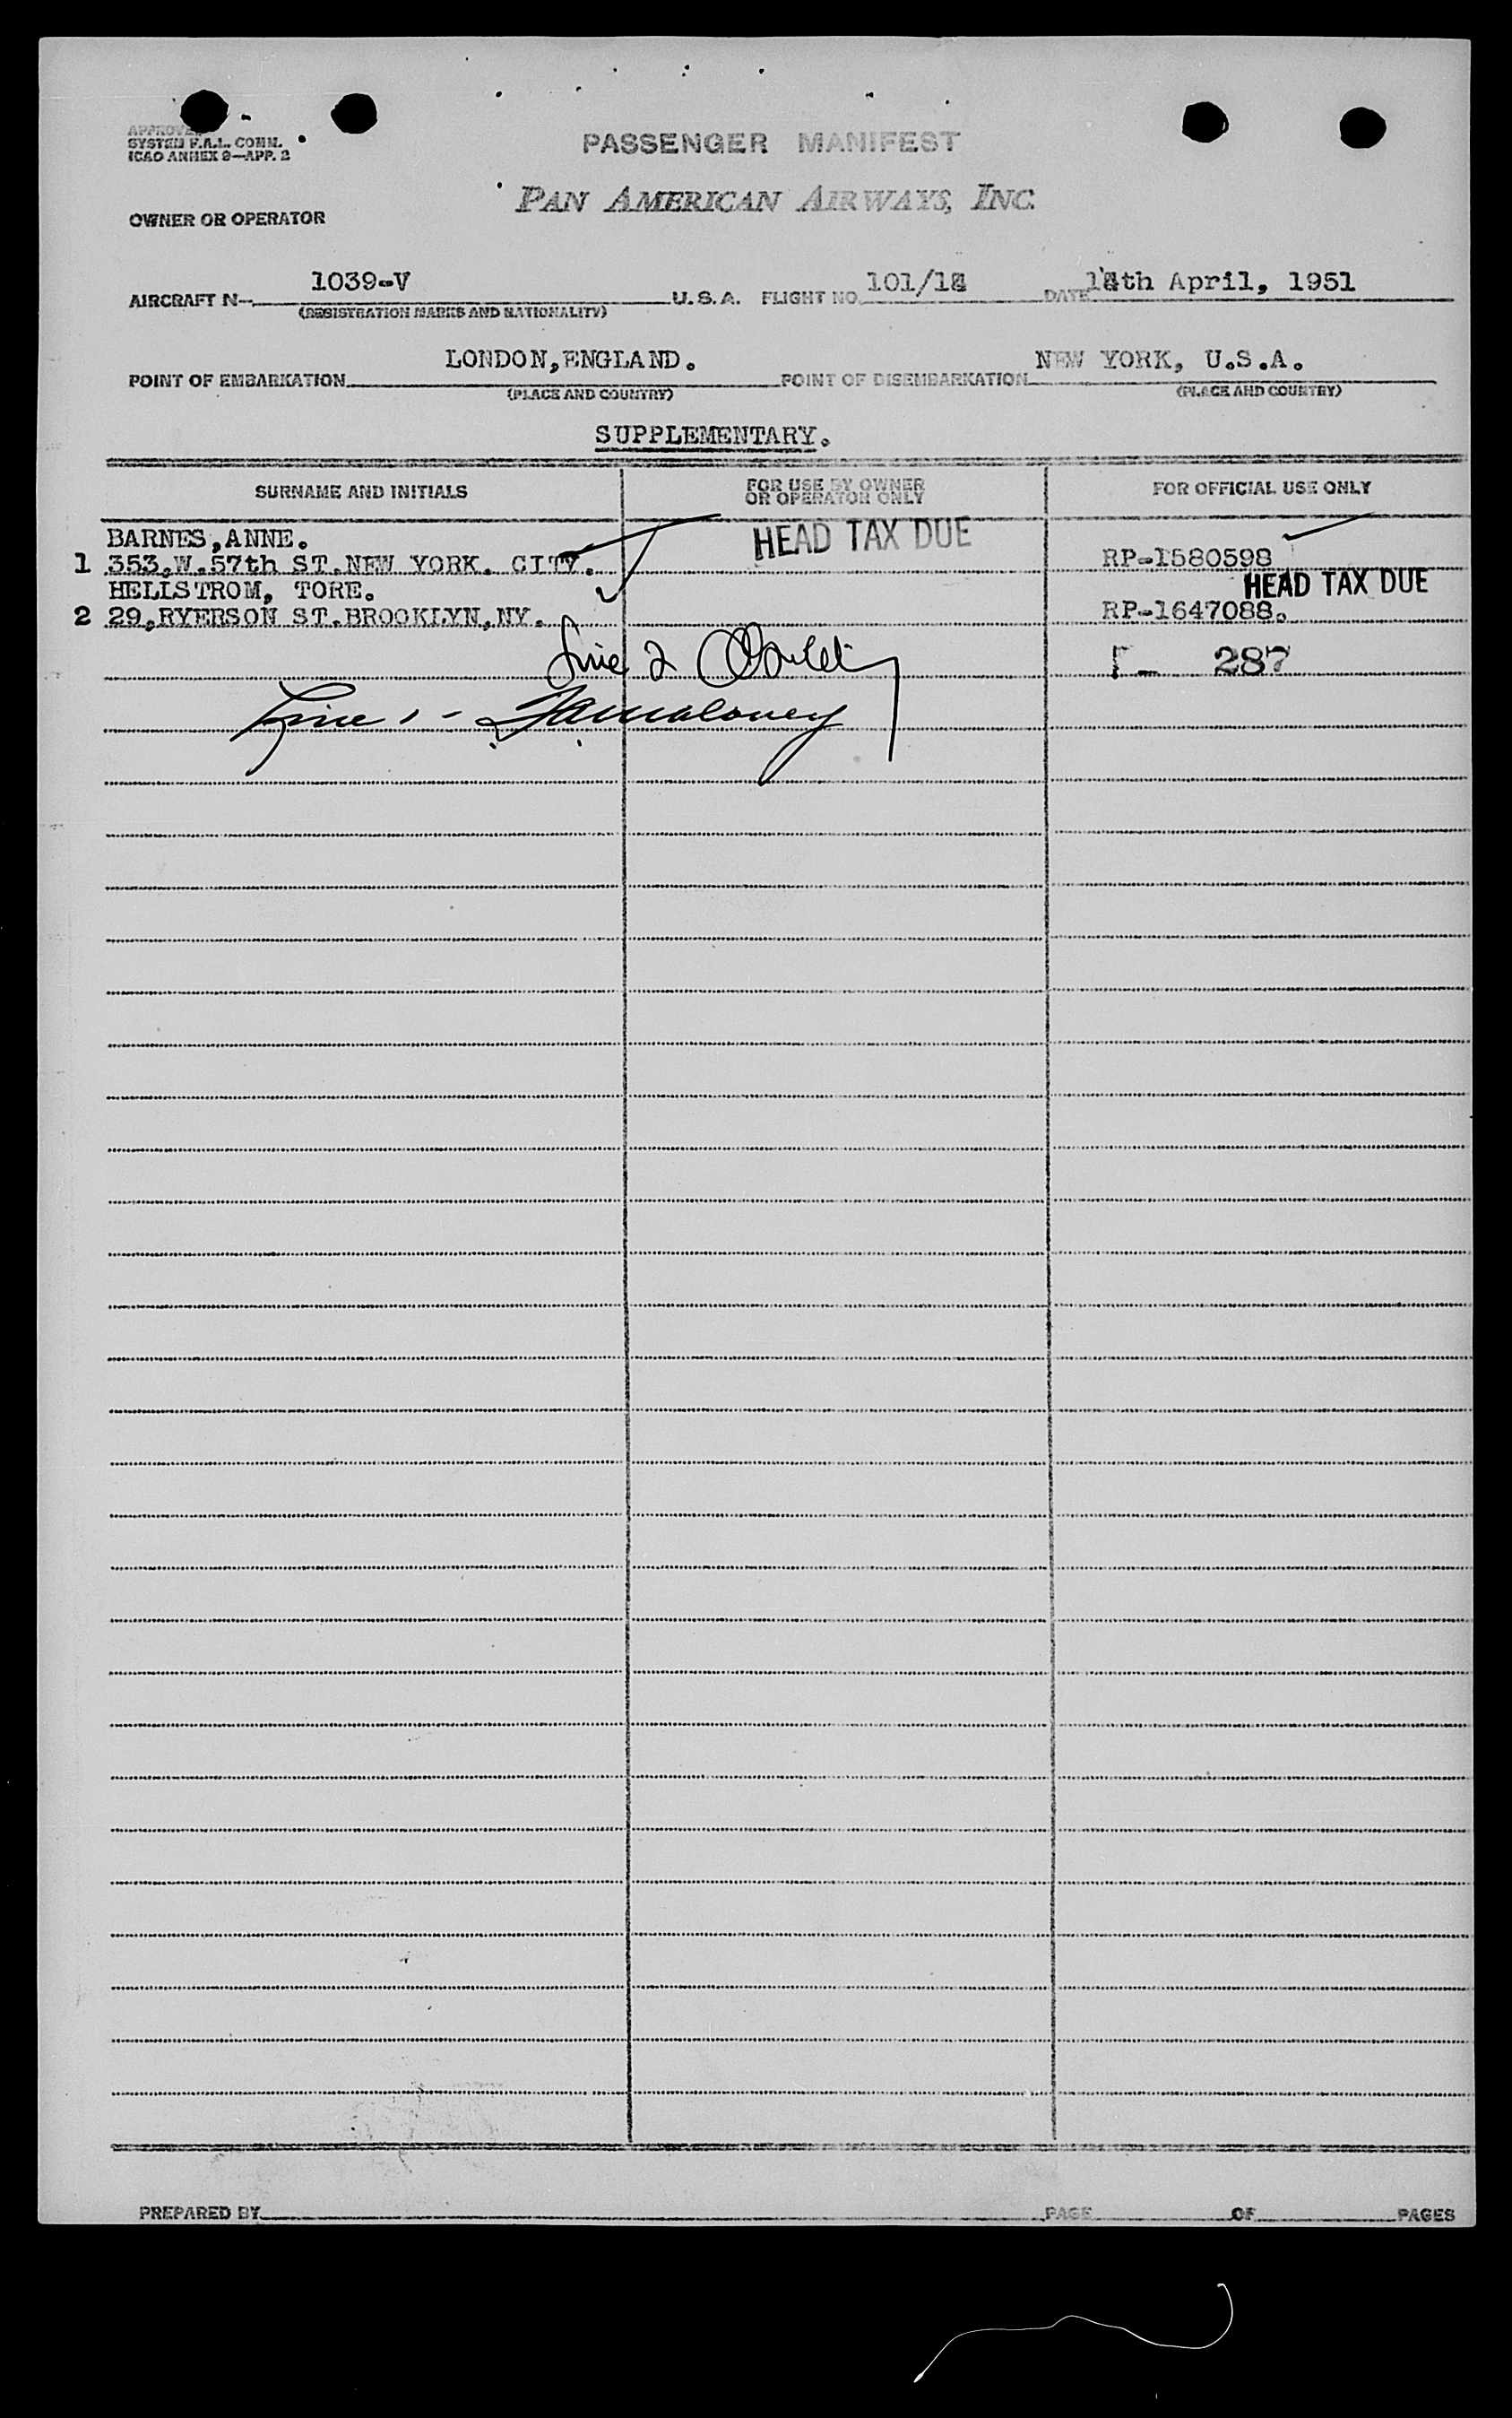 SYSTEM F.A.L. COMM.
ICAO ANNEX 9—APP. 2
PASSENGER MANIFEST
PAN AMERICAN AIRWAYS, INC.
OWNER OR OPERATOR
AIRCRAFT N- 1039-V U.S.A. FLIGHT NO. 101/1 DATE April, 1951
(REGISTRATION MARKS AND NATIONALITY)
POINT OF EMBARKATION LONDON,ENGLAND. POINT OF DISEMBARKATION NEW YORK, U.S.A.
(PLACE AND COUNTRY) (PLACE AND COUNTRY)
SUPPLEMENTARY.
SURNAME AND INITIALS FOR USE BY OWNER OR OPERATOR ONLY FOR OFFICIAL USE ONLY
BARNES,ANNE. HEAD TAX DUE
1 353,W.57th ST.NEW YORK. CITY. RP-1580598
HELLSTROM, TORE. HEAD TAX DUE
2 29,RYERSON ST.BROOKLYN,NY. RP-1647088.
Line 2 287
Line 1 -
PREPARED BY PAGE OF PAGES